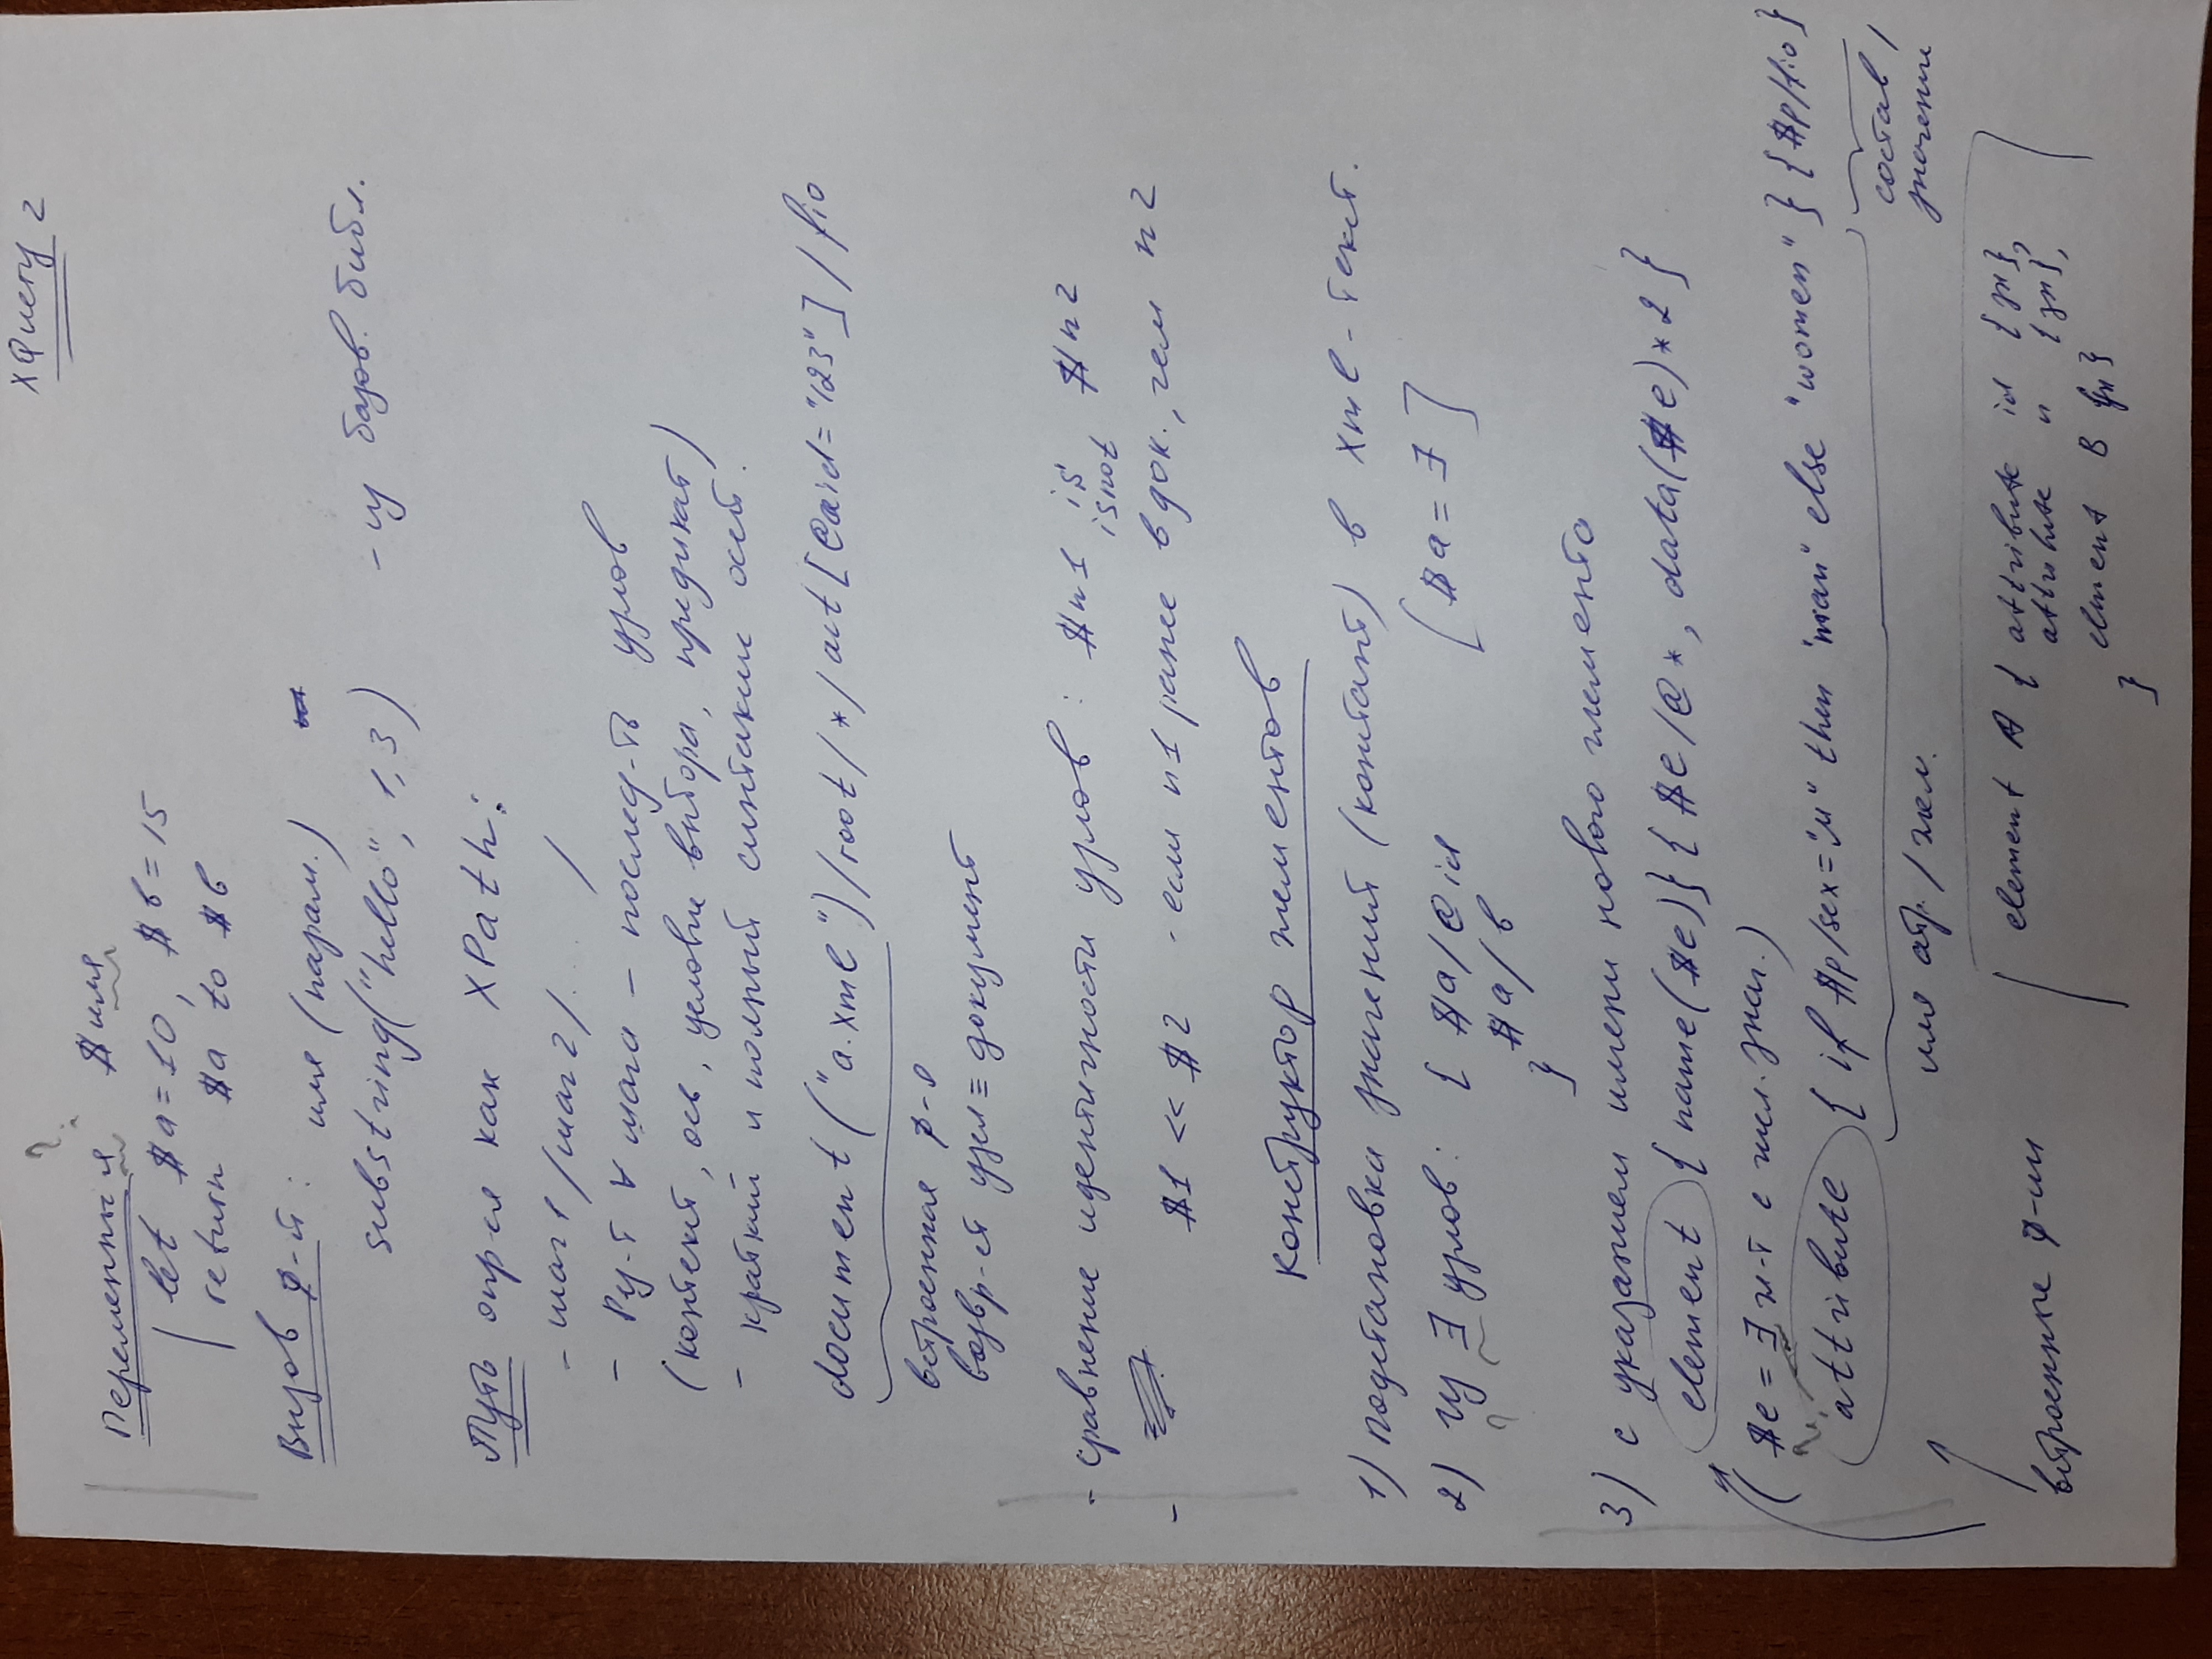 XQuery 2
?
Переменные $имя
let $a=10, $b=15
return $a to $b
Вызов ф-й: имя (парам.)
substring("hello", 1,3) - из базов. библ.
Путь опр-ся как XPath:
- шаг1/шаг2/. . . /
- Рез-т ∀ шага - послед-ть узлов
(контекст, ось, условие выбора, предикат)
- краткий и полный синтаксис осей.
document("a.xml")/root/*/act[@aid="123"]/fio
встроенная ф-я
возвр-ет узел ≡ документ
- сравнение идентичности узлов: $n1 is $n2
isnot
- $1 << $2 - если n1 ранее в док., чем n2
Конструктор элементов
1) подстановка значений (констант) в xml-текст.
2) из ∃ узлов: { $a/@id [$a=∃]
?
$a/b
}
3) с указанием имени нового элемента
element {name($e)}{$e/@*, data($e)*2}
($e = ∃ эл-т с числ. знач.)
attribute {if $p/sex="м" then "man" else "women"} {$p/fio}
имя атр./элем. состав/
значение
встроенные ф-ии
element A { attribute id {зн},
attribute n {зн},
elment B {зн}
}